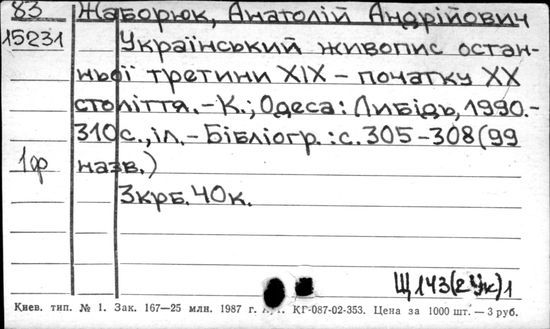 83 Жаборюк, Анатолій Андрійович
15231 Український живопис остан-
ньої третини XIX – початку XX
століття. – К.; Одеса: Либідь, 1990. –
310 с., іл. – Бібліогр.: с. 305–308 (99
1ф назв.)
3крб. 40к.
Щ143(2Ук)1
Киев. тип. № 1. Зак. 167—25 млн. 1987 г. КГ-087-02-353. Цена за 1000 шт. — 3 руб.